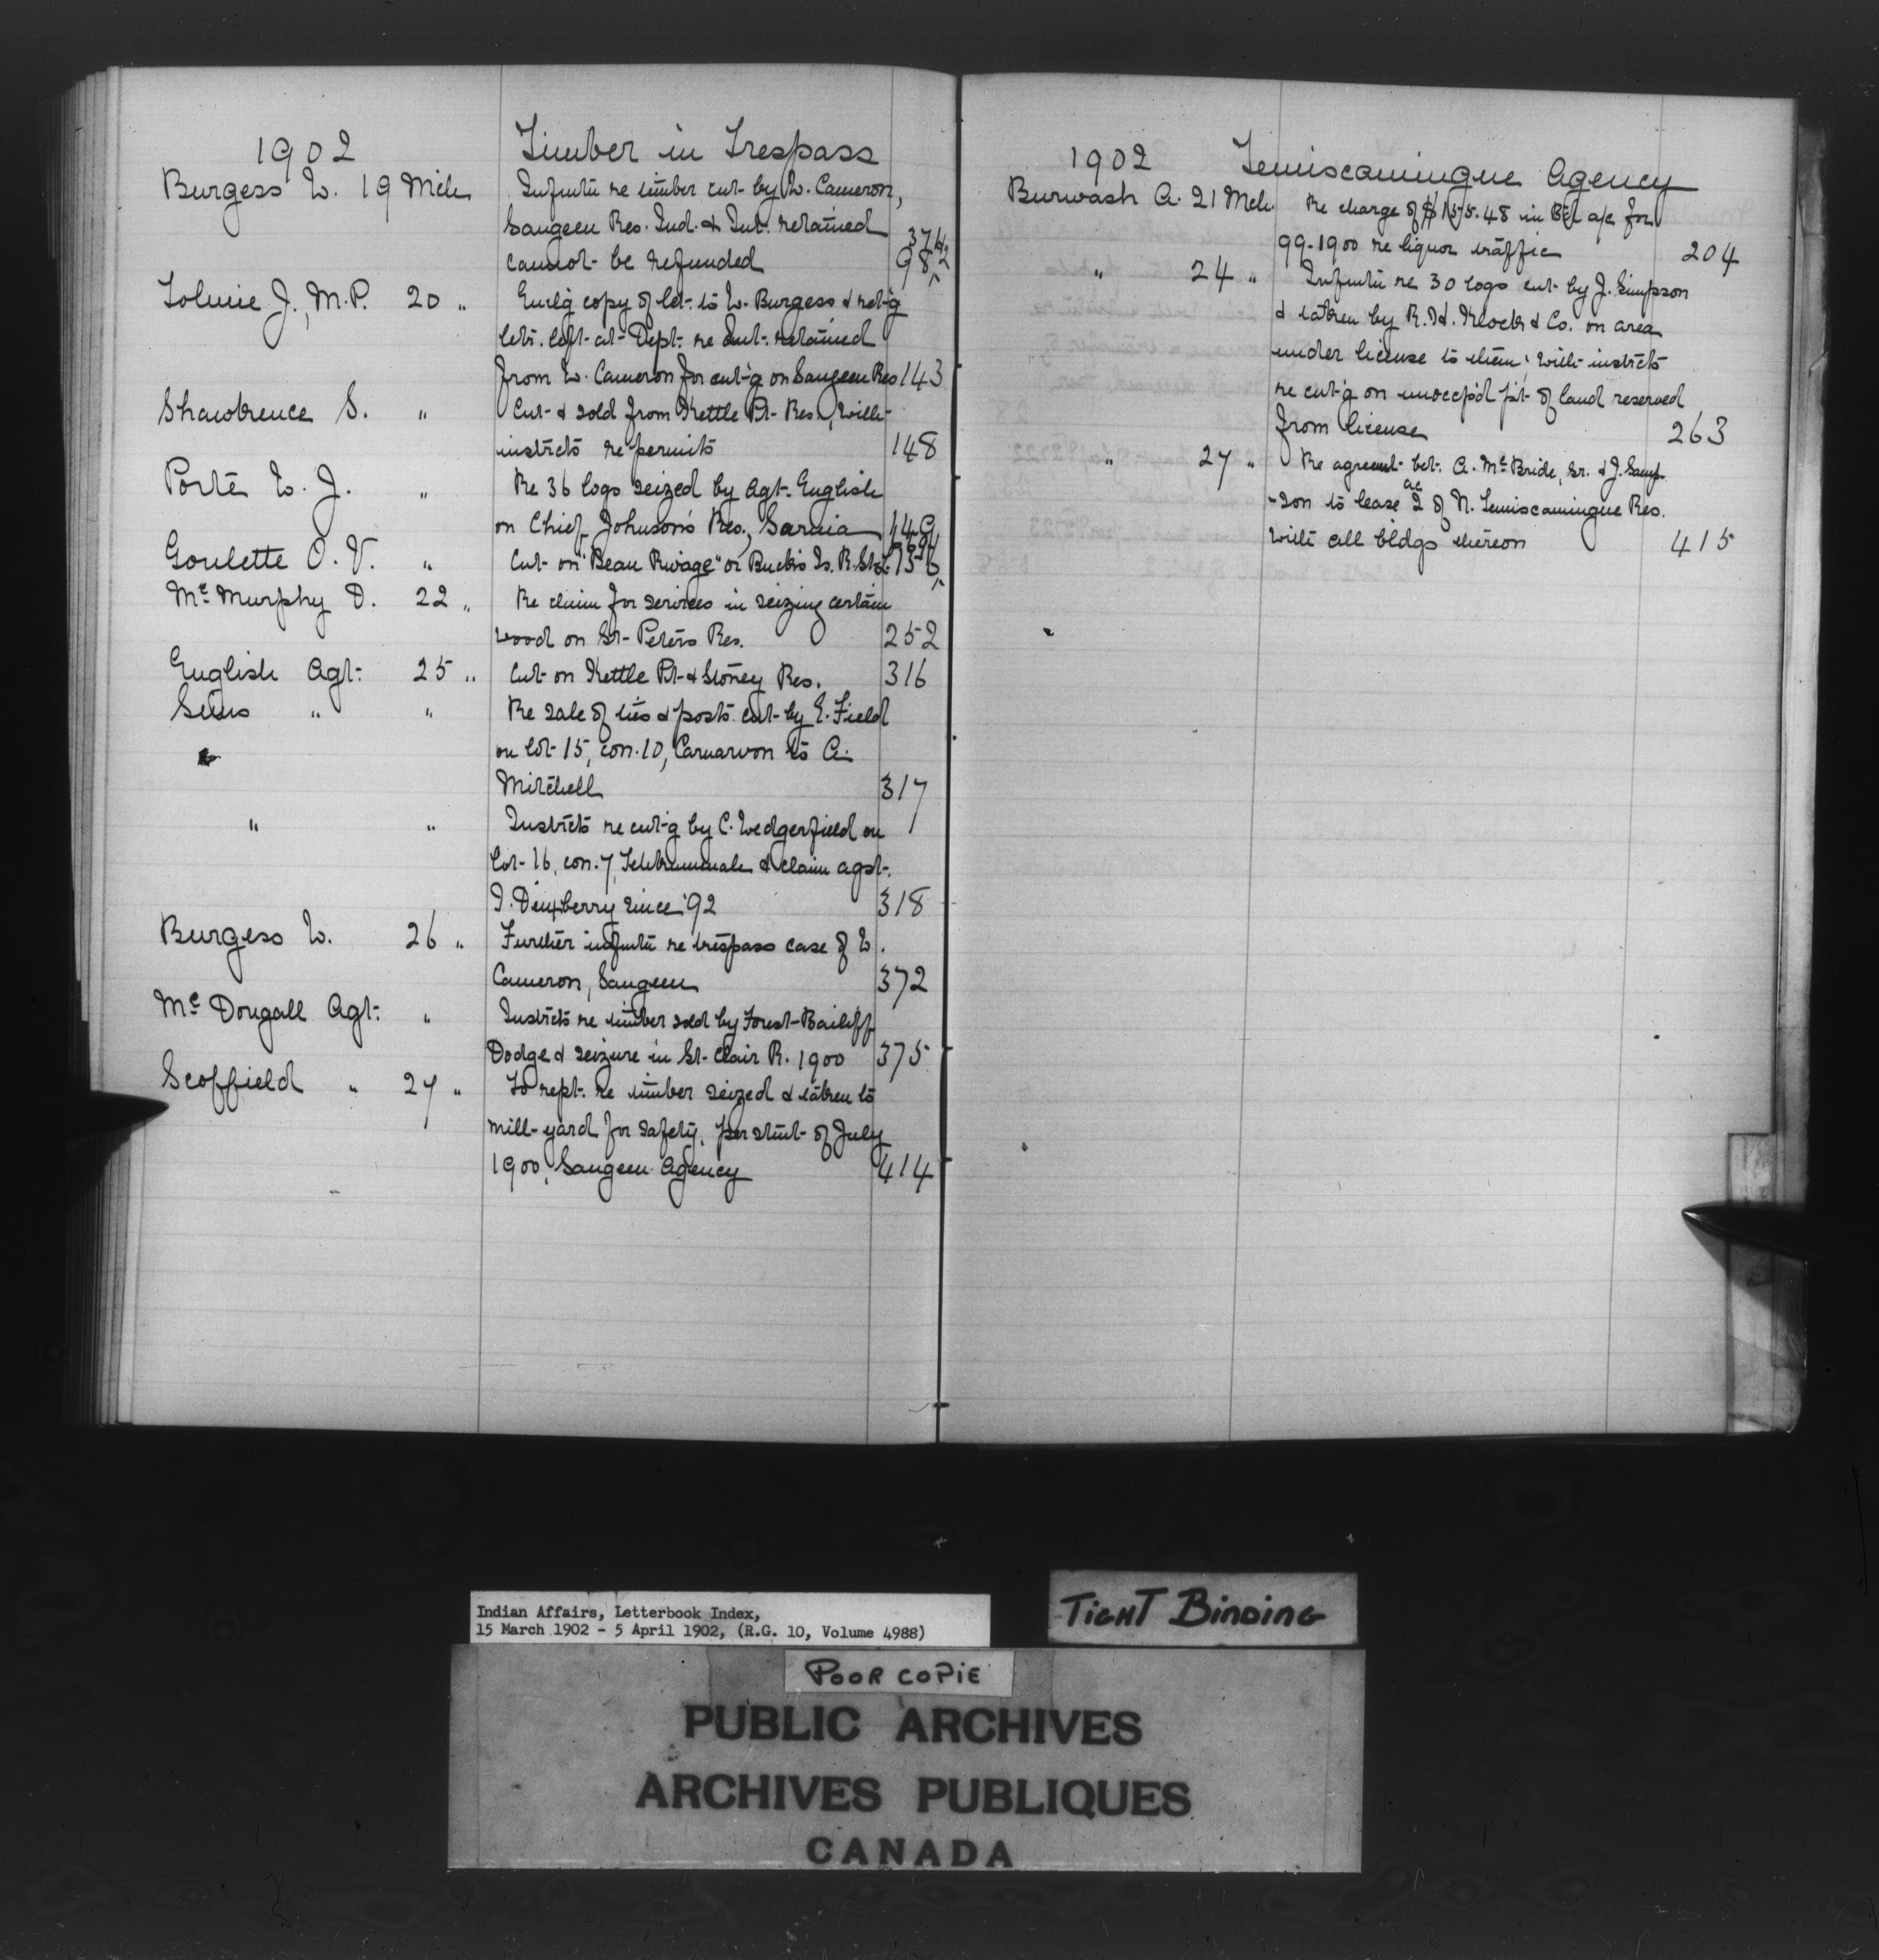 1902 Timber in Trespass
Burgess W. 19 Mch Infmtn re timber cut by W. Cameron,
Saugeen Res. Ind. & Int. retained
cannot be refunded 98
Tolmie J., M.P. 20 " Encl'g copy of let. to W. Burgess & ret'g
lets. left at Dept. re Int. retained
from W. Cameron for cut'g on Saugeen Res 143
Shawbrence S. " Cut & sold from Kettle Pt. Res., with
instrcts re permits 148
Porte W. J. " Re 36 logs seized by Agt. English
on Chief Johnson's Res., Sarnia 149
Goulette O. V. " Cut on "Beau Rivage" or Buck's Is. R. St. L. 156
McMurphy D. 22 " Re claim for services in seizing certain
wood on St. Peters Res. 252
English Agt. 25 " Cut on Kettle Pt. & Stoney Res. 316
Sims " " Re sale of ties & posts cut by E. Field
on lot 15, con. 10, Carnarvon to A.
Mitchell 317
" " Instrcts re cut'g by C. Wedgerfield on
lot 16, con. 7, & claim agst.
Dewberry since '92 318
Burgess W. 26 " Further infmtn re trespass case of W.
Cameron, Saugeen 372
McDougall Agt. " Instrcts re timber sold by Forest Bailiff
Dodge & seizure in St. Clair R. 1900 375
Scoffield " 27 " To rept. re timber seized & taken to
mill-yard for safety, per stmt. of July
1900, Saugeen Agency 414
1902 Temiscamingue Agency
Burwash A. 21 Mch. Re charge of $155.48 in a/c for
99-1900 re liquor traffic 204
" 24 " Infmtn re 30 logs cut by J. Simpson
& taken by R. H. Klock & Co. on area
under license to them; with instrcts
re cut'g on unoccp'd pt. of land reserved
from license 263
" 27 " Re agreemt. bet. A. McBride, Sr. & J. Samp-
-son to lease 2 ac of N. Temiscamingue Res.
with all bldgs thereon 415
Indian Affairs, Letterbook Index,
15 March 1902 - 5 April 1902, (R.G. 10, Volume 4988)
TIGHT BINDING
POOR COPIE
PUBLIC ARCHIVES
ARCHIVES PUBLIQUES
CANADA